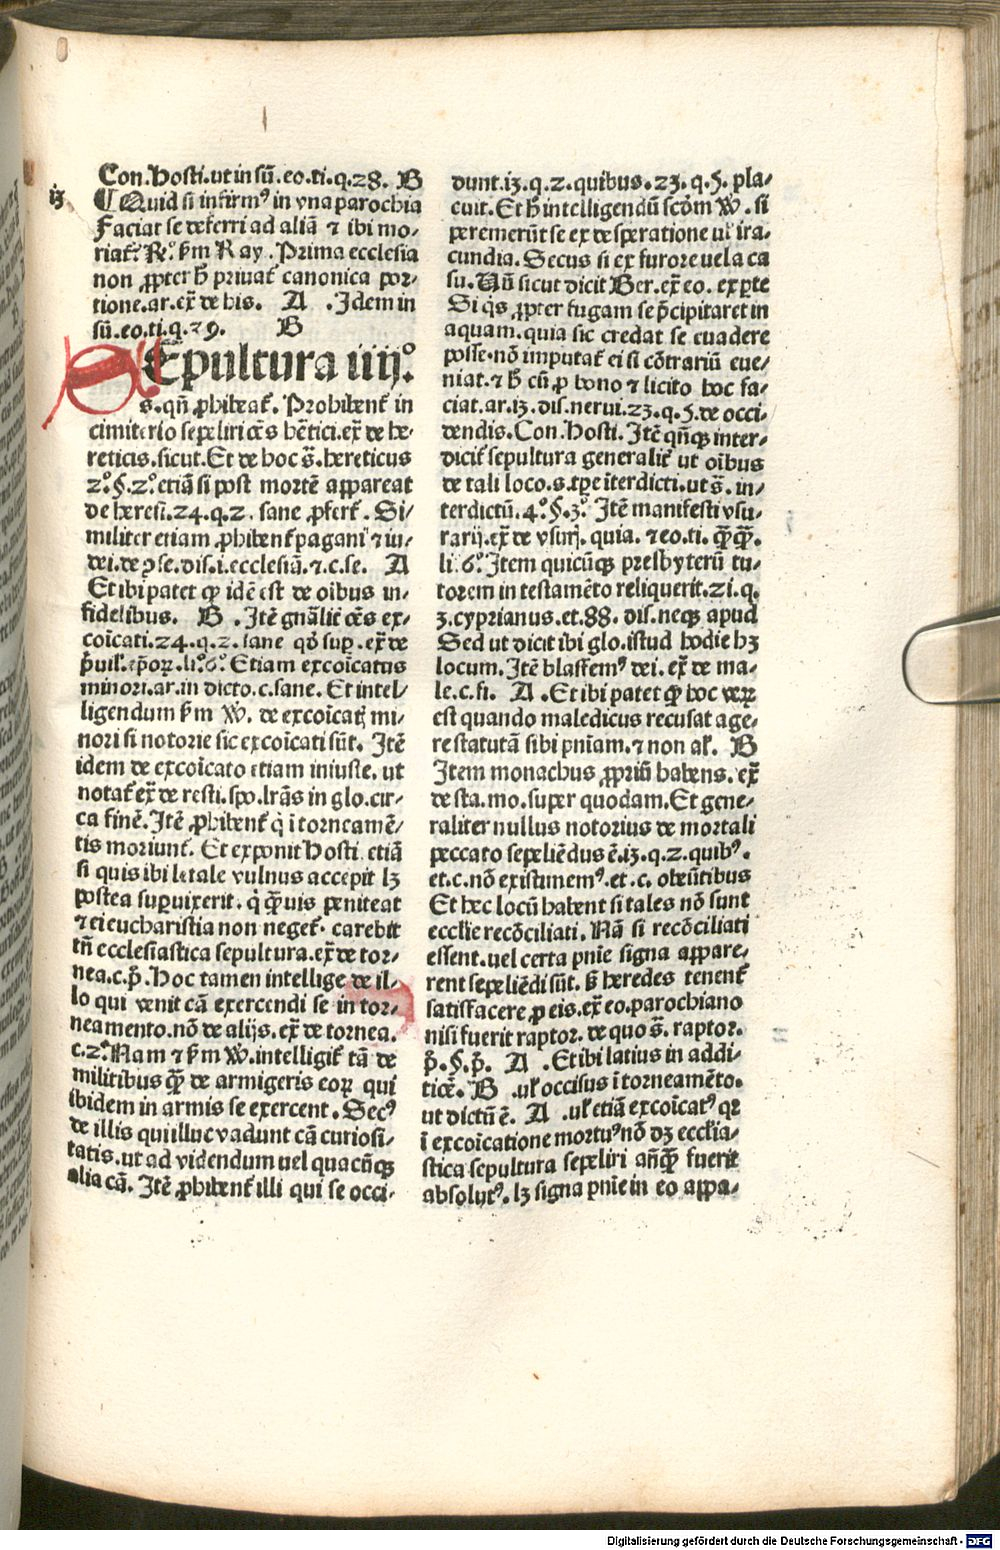 Con.Hosti.ut in sū.eo.ti.q.28. B
iз
¶ Quid si infirmꝰ in vna parochia
Faciat se deferri ad aliā ⁊ ibi mo⸗
riat̄? Rº. ẜm Ray. Prima ecclesia
non ꝓpter h̄ priuat̄ canonica por⸗
tione.ar.ex̄ de his. A .Idem in
sū.eo.ti.q.29. B
SEpultura iiij.º
s.qn̄ ꝓhibeat̄. Prohibent̄ in
cimiterio sepeliri oēs hētici.ex̄ de he⸗
reticis.sicut.Et de hoc s̄. hereticus
2.º §.2.º etiā si post mortē appareat
de heresi.24.q.2. sane ꝓfert̄. Si⸗
militer etiam ꝓhibent̄ pagani ⁊ iu⸗
dei.de ↄse.dis.i.ecclesiā.⁊.c.se. A
Et ibi patet ꝙ idē est de oībus in⸗
fidelibus. B . Itē gnālit̄ oēs ex⸗
coīcati.24.q.2.sane qđ sup̱.ex̄ de
p̄uil.ep̄oꝝ.li.º6.º Etiam excoīcatus
minori.ar.in dicto.c.sane. Et intel⸗
ligendum ẜm W. de excoīcatꝭ mi⸗
nori si notorie sic excoīcati sūt. Itē
idem de excoīcato etiam iniuste. ut
notat̄ ex̄ de resti.spo.lr̄as in glo.cir⸗
ca finē.Itē ꝓhibent̄ q̇ ī torneamē⸗
tis moriunt̄. Et exponit Hosti etiā
si quis ibi letale vulnus accepit lꝫ
postea suꝑuixerit. q̇ ꝙ̄uis peniteat
⁊ ei eucharistia non neget̄. carebit
tn̄ ecclesiastica sepultura.ex̄ de tor⸗
nea.c.p̄. Hoc tamen intellige de il⸗
lo qui venit cā exercendi se in tor⸗
neamento.nō de alijs.ex̄ de tornea.
c.2.º Nam ⁊ ẜm W.intelligit̄ tā de
militibus ꝙ̄ de armigeris eoꝝ qui
ibidem in armis se exercent. Secꝰ
de illis qui illuc vadunt cā curiosi⸗
tatis.ut ad videndum uel quacūqꝫ
alia cā. Itē ꝓhibent̄ illi qui se occi⸗
dunt.iз.q.2.quibus.23.q.5. pla⸗
cuit. Et h̄ intelligendū scōm W. si
peremerūt se ex desperatione ul̄ ira⸗
cundia. Secus si ex furore uel a ca
su. Un̄ sicut dicit Ber.ex̄ eo. ex ꝑte
Si q̇s ꝓpter fugam se p̄cipitaret in
aquam. quia sic credat se euadere
posse.nō imputat̄ ei si cōtrariū eue⸗
niat.⁊ h̄ cū ꝓ bono ⁊ licito hoc fa⸗
ciat.ar.iз.dis.nerui.23.q.5.de occi⸗
dendis.Con.Hosti. Itē qn̄qꝫ inter⸗
dicit̄ sepultura generalit̄ ut oībus
de tali loco.s.tꝑe iterdicti.ut s̄. in⸗
terdictū.4.º §.3.º Itē manifesti vsu⸗
rarij.ex̄ de vsurꝭ. quia. ⁊ eo.ti. ꝙ̄ꝙ̄.
li.6.º Item quicūqꝫ presbyterū tu⸗
torem in testamēto reliquerit.2i.q.
3.cyprianus.et.88. dis.neqꝫ apud
Sed ut dicit ibi glo.istud hodie hꝫ
locum. Itē blasfemꝰ dei. ex̄ de ma⸗
le.c.fi. A .Et ibi patet ꝙ hoc veꝝ
est quando maledicus recusat age⸗
re statutā sibi pnīam.⁊ non al̄. B
Item monachus ꝓpriū habens. ex̄
de sta.mo.super quodam.Et gene⸗
raliter nullus notorius de mortali
peccato sepeliēdus ē.iз.q.2.quibꝰ.
et.c.nō existimemꝰ.et.c. obeūtibus
Et hec locū habent si tales nō sunt
eccl̄ie recōciliati. Nā si recōciliati
essent.uel certa pnīe signa appare⸗
rent sepeliēdi sūt. ẜ heredes tenent̄
satisfacere ꝓ eis.ex̄ eo.parochiano
nisi fuerit raptor. de quo s̄. raptor.
p̄.§.p̄. A .Et ibi latius in addi⸗
ticē. B .ul̄ occisus ī torneamēto.
ut dictū ē. A .ul̄ etiā excoīcatꝰ qꝛ
ī excoīcatione mortuꝰ nō dꝫ eccl̄ia⸗
stica sepultura sepeliri an̄ꝙ̄ fuerit
absolutꝰ. lꝫ signa pnīe in eo appa⸗
Digitalisierung gefördert durch die Deutsche Forschungsgemeinschaft - DFG